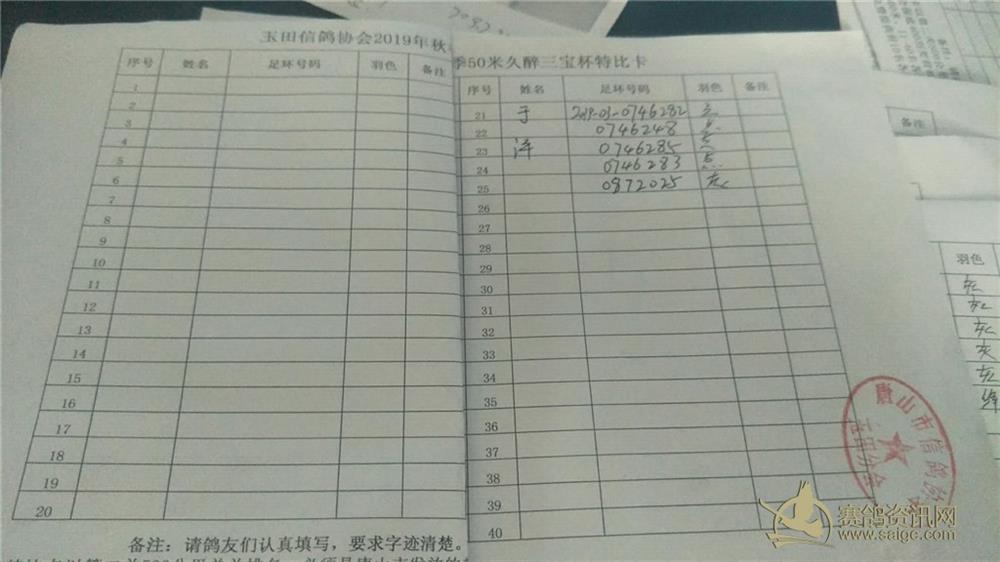 玉田信鸽协会2019年秋
序号 姓名 足环号码 羽色 备注
1
2
3
4
5
6
7
8
9
10
11
12
13
14
15
16
17
18
19
20
备注：请鸽友们认真填写，要求字迹清楚。
季50米久醉三宝杯特比卡
序号 姓名 足环号码 羽色 备注
21 于 2019-03-0746282
22 0746248
23 洋 0746285
24 0746283
25 0872025 灰
26
27
28
29
30
31
32
33
34
35
36
37
38
39
40
唐山市信鸽协会
玉田分会
备注
羽色
灰
灰
灰
灰
灰
绛
赛鸽资讯网
www.saigc.com